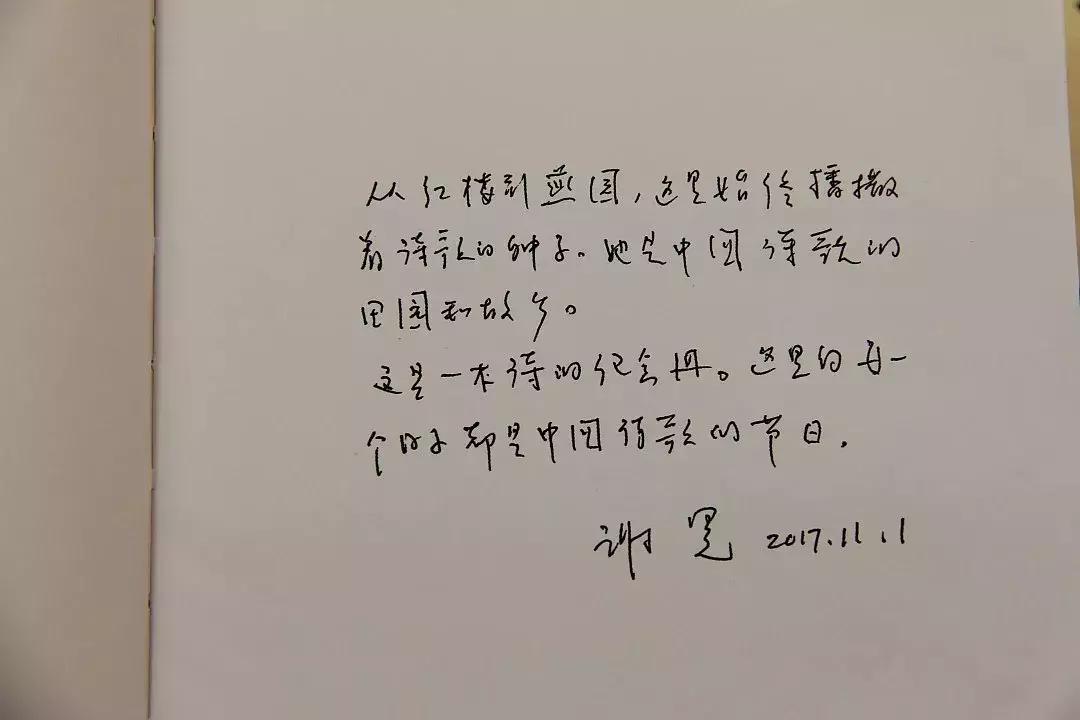 从红楼到燕园,这里始终播撒
着诗歌的种子。她是中国诗歌的
田园和故乡。
这是一本诗的纪念册。这里的每一
个日子都是中国诗歌的节日.
谢冕 2017.11.1